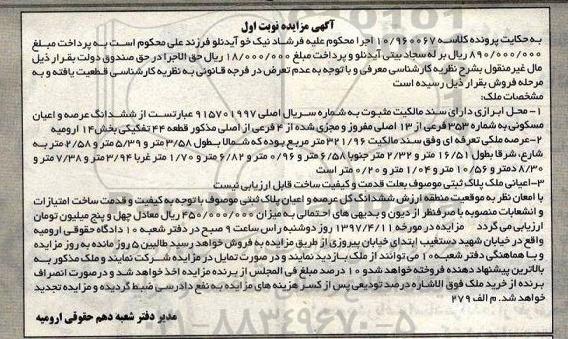 آگهی مزایده نوبت اول
به حکایت پرونده کلاسه ۱۰/۹۶۰۰۶۷ اجرا محکوم علیه فرشاد نیک خو آیدنلو فرزند علی محکوم است به پرداخت مبلغ
۸۹۰/۰۰۰/۰۰۰ ریال بر له سجاد بیتی آیدنلو و پرداخت مبلغ ۱۸/۰۰۰/۰۰۰ ریال حق الاجرا در حق صندوق دولت بقرار ذیل
مال غیرمنقول بشرح نظریه کارشناسی معرفی و با توجه به عدم تعرض در فرجه قانونی به نظریه کارشناسی قطعیت یافته و به
مرحله فروش بقرار ذیل رسیده است
مشخصات ملک:
۱- محل ابرازی دارای سند مالکیت مثبوت به شماره سریال اصلی ۹۱۵۷۰۱۹۹۷ عبارتست از ششدانگ عرصه و اعیان
مسکونی به شماره ۳۵۳ فرعی از ۱۳ اصلی مفروز و مجزی شده از ۴ فرعی از اصلی مذکور قطعه ۴۴ تفکیکی بخش ۱۴ ارومیه
۲-عرصه ملکی تعرفه ای وفق سند مالکیت ۳۲۱/۹۶ متر مربع بوده که شمالا بطول ۳/۵۸ متر و ۵/۳۹ متر و ۲/۵۸ متر به
شارع، شرقا بطول ۱۶/۵۱ متر و ۲/۳۲ متر جنوبا ۶/۵۵ متر و ۰/۹۶ متر و ۶/۸۲ متر و ۱/۷۰ متر غربا ۳/۹۴ متر و ۷/۳۸ متر و
۸/۳۰ دمتر و ۱۰/۵۶ متر و ۱/۰۴ متر و ۰/۲۰ متر است
۳-اعیانی ملک پلاک ثبتی موصوف بعلت قدمت و کیفیت ساخت قابل ارزیابی نیست
با امعان نظر به موقعیت منطقه ارزش ششدانگ کل عرصه و اعیان پلاک ثبتی موصوف با توجه به کیفیت و قدمت ساخت امتیازات
و انشعابات منصوبه با صرفنظر از دیون و بدیهی های احتمالی به میزان ۴۵۰/۰۰۰/۰۰۰ ریال معادل چهل و پنج میلیون تومان
ارزیابی می گردد    مزایده در مورخه ۱۳۹۷/۴/۱۱ روز دوشنبه راس ساعت ۹ صبح در دفتر شعبه ۱۰ دادگاه حقوقی ارومیه
واقع در خیابان شهید دستغیب ابتدای خیابان پیروزی از طریق مزایده به فروش خواهد رسید طالبین ۵ روز مانده به روز مزایده
و با هماهنگی دفتر شعبه ۱۰ می توانند از ملک بازدید نمایند و در صورت تمایل در مزایده شرکت نمایند و ملک مذکور به
بالاترین پیشنهاد دهنده فروخته خواهد شد و ۱۰ درصد مبلغ فی المجلس از برنده مزایده اخذ خواهد شد و در صورت انصراف
برنده از خرید ملک فوق الاشاره درصد تودیعی پس از کسر هزینه های مزایده به نفع دادرسی ضبط گردیده و مزایده تجدید
خواهد شد. م الف ۲۷۹
مدیر دفتر شعبه دهم حقوقی ارومیه
۰۲۱-۸۸۳۴۹۶۷۰-۵